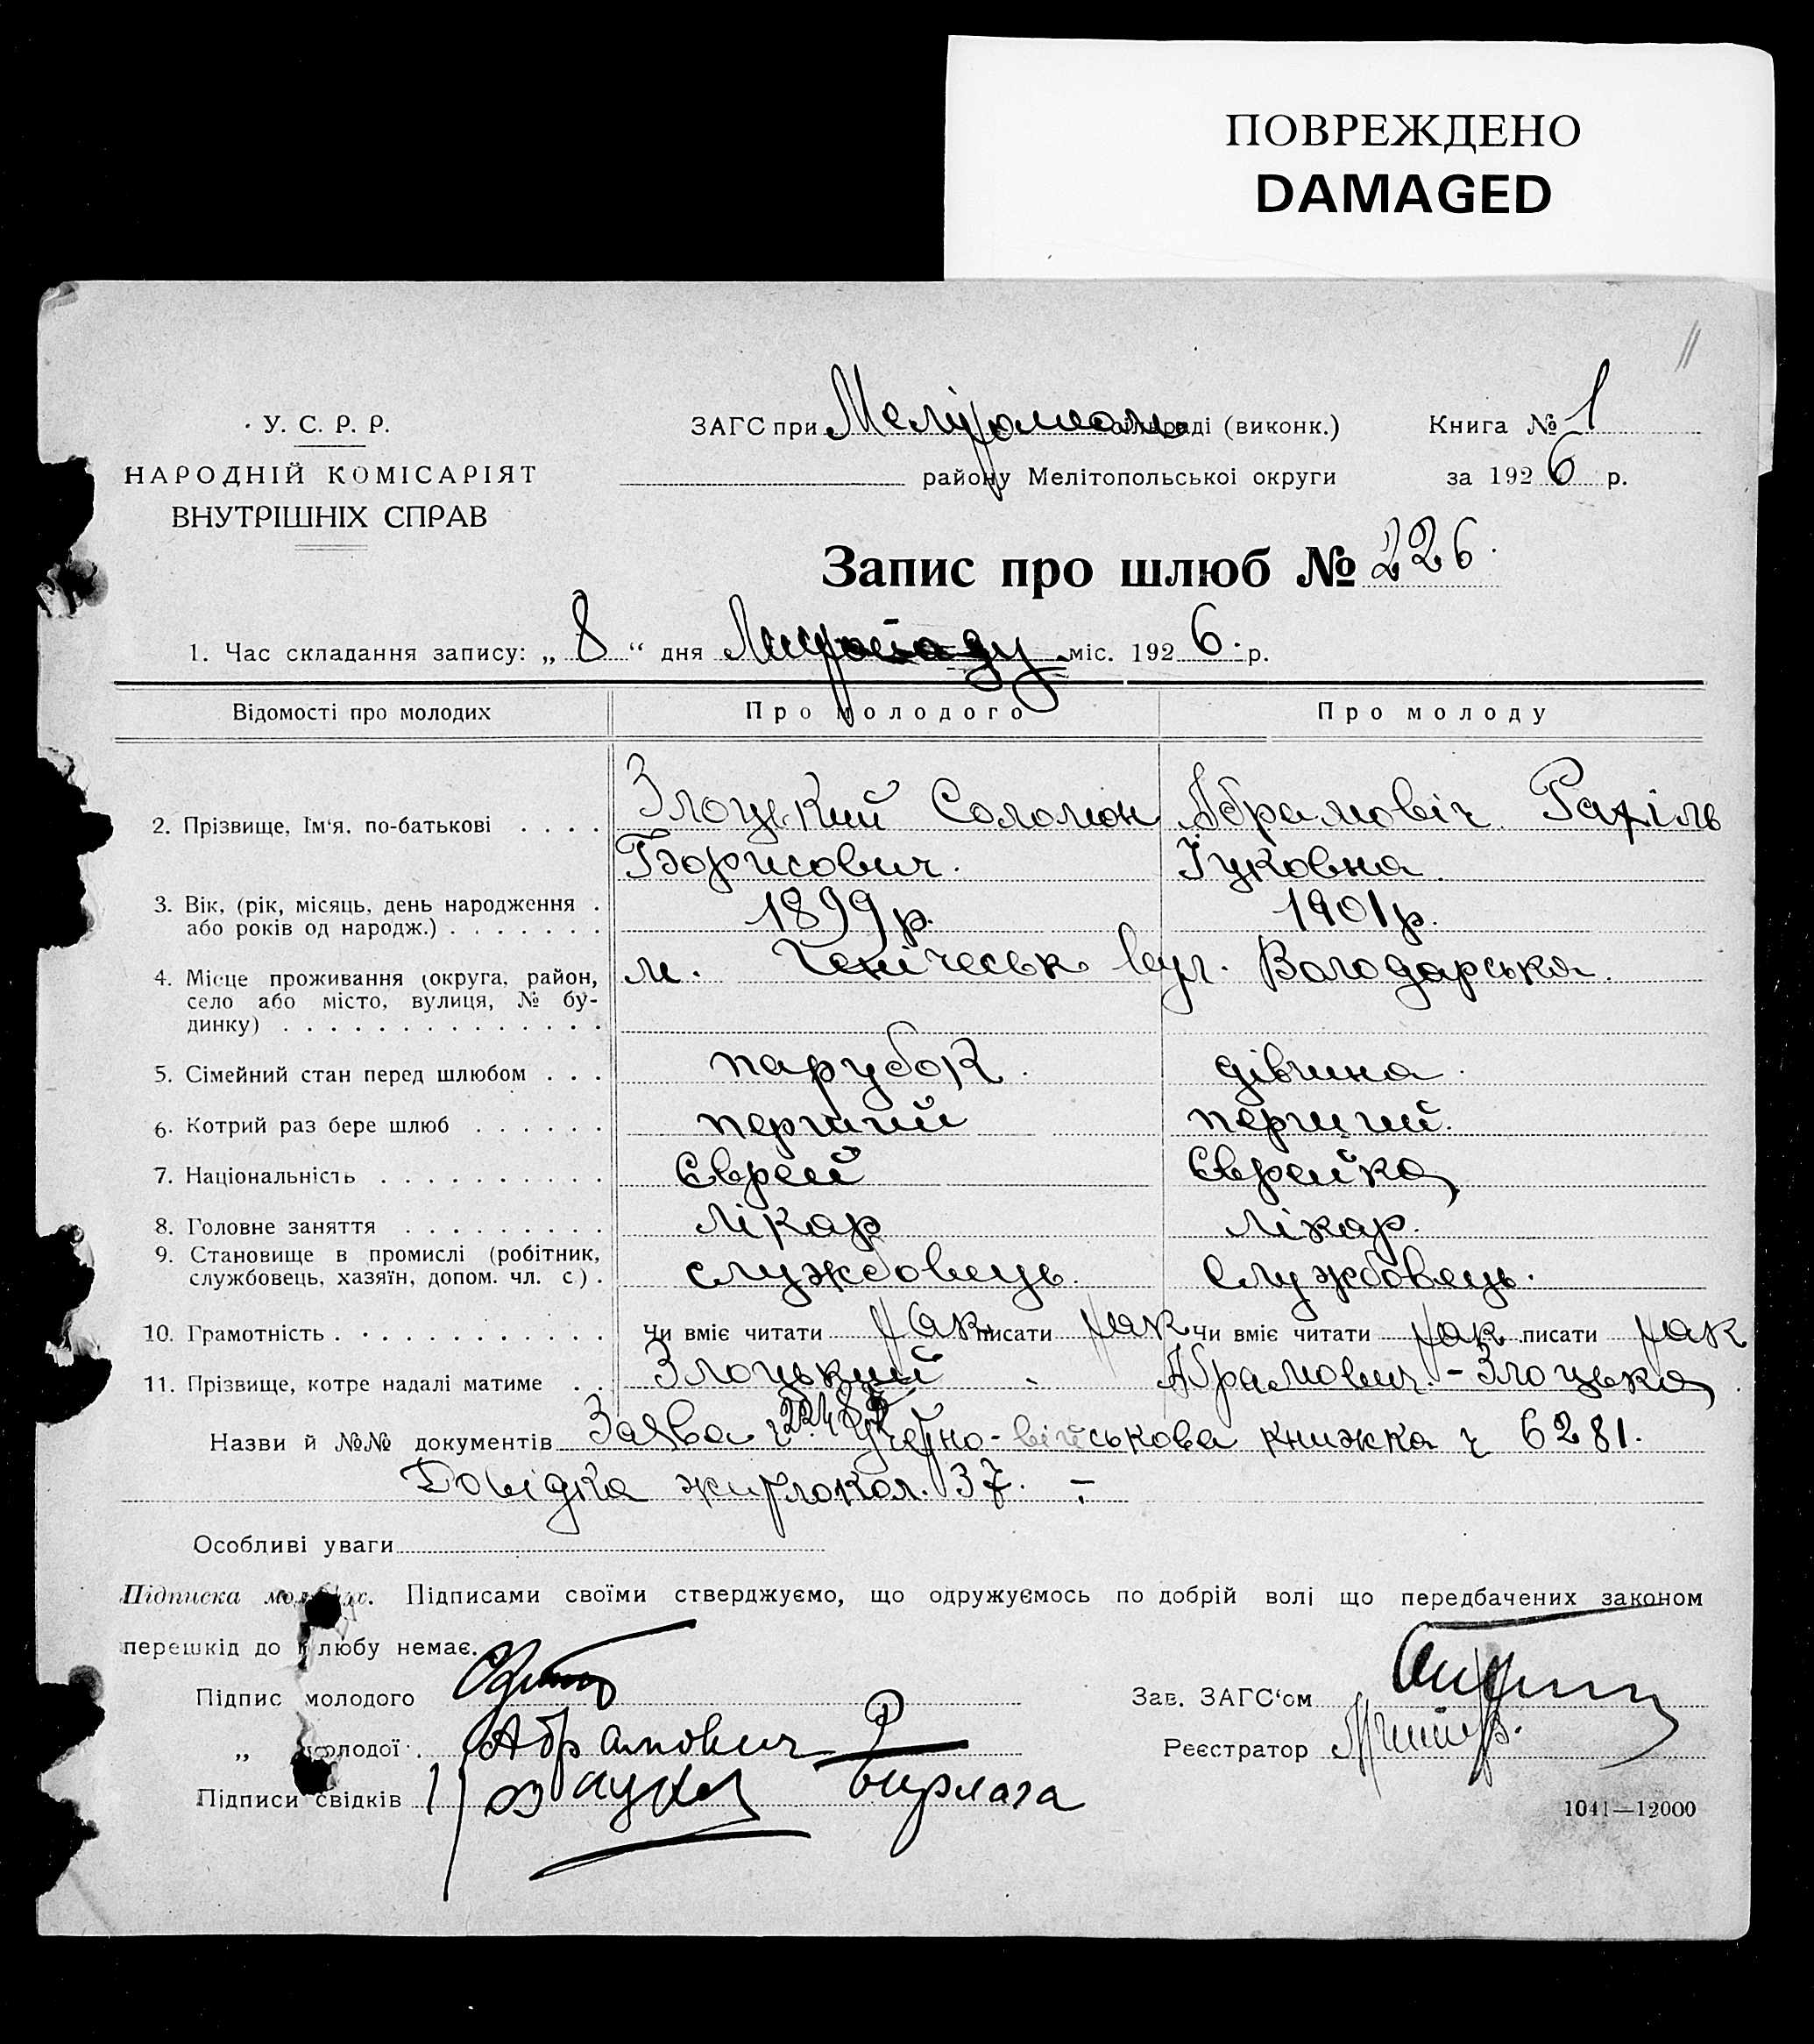 ПОВРЕЖДЕНО
DAMAGED
11
У. С. Р. Р.
НАРОДНІЙ КОМІСАРІЯТ
ВНУТРІШНІХ СПРАВ
ЗАГС при сільраді (виконк.)
району Мелітопольської округи
Книга № 1
за 1926 р.
Запис про шлюб № 226.
1. Час складання запису: „ 8 “ дня Листопаду міс. 1926. р.
Відомості про молодих Про молодого Про молоду
2. Прізвище, Ім‘я, по-батькові . . . . Злоцький Соломон Абрамовіч Рахіль
Борисович. Іцковна.
3. Вік, (рік, місяць, день народження . 1899 р. 1901 р.
або років од народж.) . . . . . . .
4. Місце проживання (округа, район, м. Генічеськ вул. Володарська.
село або місто, вулиця, № бу-
динку) . . . . . . . . . . . . . .
5. Сімейний стан перед шлюбом . . . парубок. дівчина.
6. Котрий раз бере шлюб . . . . . . перший перший.
7. Національність . . . . . . . . . . Єврей Єврейка
8. Головне заняття . . . . . . . . . лікар лікар.
9. Становище в промислі (робітник,
службовець, хазяїн, допом. чл. с) . службовець. Службовець.
10. Грамотність . . . . . . . . . . . . Чи вміє читати так писати так Чи вміє читати так писати так
11. Прізвище, котре надалі матиме . . Злоцький Абрамович. - Злоцька
Назви й №№ документів Заява ч. Учетно-військова книжка ч 6281.
Довідка житлокол. 37. -
Особливі уваги
Підписка молодих. Підписами своїми стверджуємо, що одружуємось по добрій волі що передбачених законом
перешкід до шлюбу немає.
Підпис молодого
Зав. ЗАГС‘ом
„ молодої . Абрамович Р
Реєстратор
Підписи свідків 1)
1041—12000